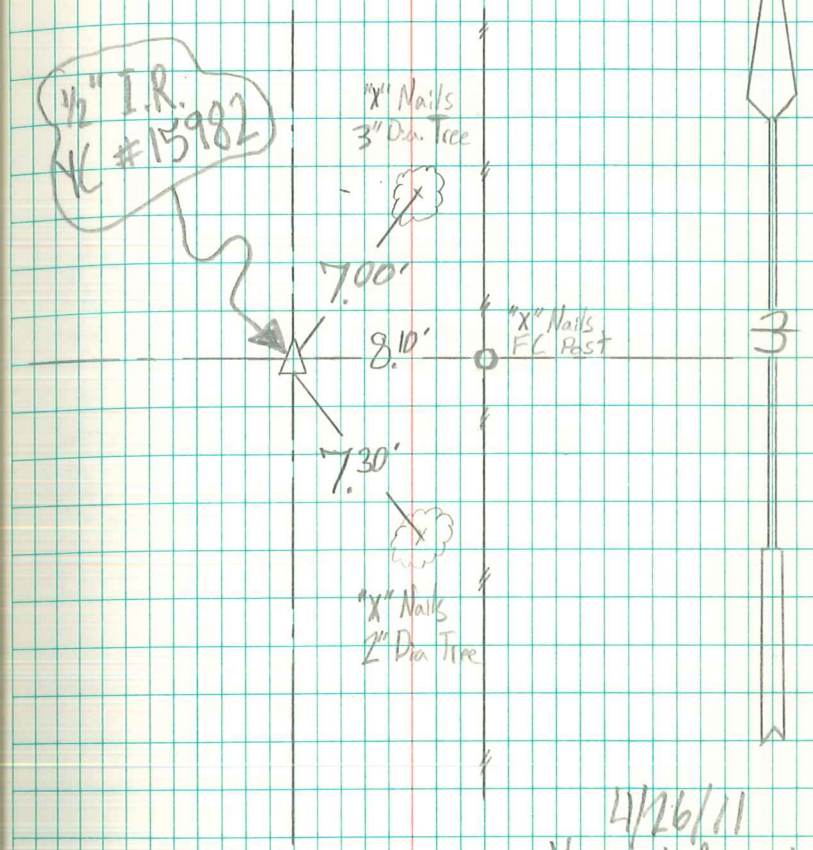 1/2" I.R.
YC #15982
"X" Nails
3" Dia. Tree
7.00'
8.10'
"X" Nails
FC Post
7.30'
"X" Nails
2" Dia Tree
4/26/11